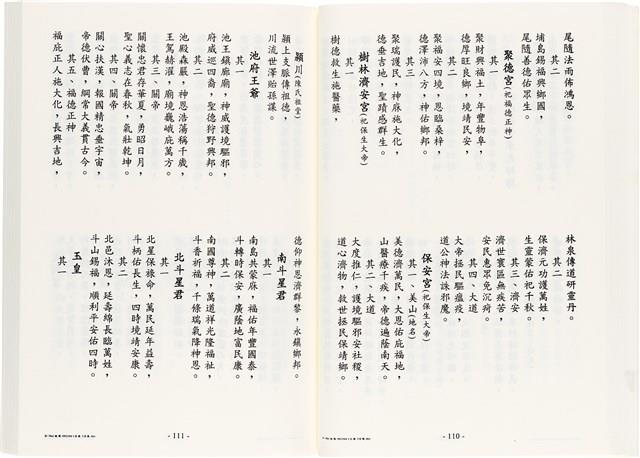 尾隨法雨佈鴻恩。
其二
埔島錫福興鄉國，
尾隨善德佑眾生。
聚德宮(祀福德正神)
其一
聚財興福土，年豐物阜，
德厚旺良鄉，境靖民安，
其二
聚福安四境，恩臨桑梓，
德澤沛八方，神佑鄉邦。
其三
聚瑞護民，神麻施大化，
德垂吉地，聖蹟感群生。
樹林濟安宮(祀保生大帝)
其一
樹德救生施醫藥，
林泉傳道研靈丹。
其二
保濟元功護萬姓，
生靈蒙佑祀千秋。
其三、濟安
濟世寰區無疾苦，
安民惠眾免沉痾。
其四、大道
大帝拯民驅瘟疫，
道公神法誅邪魔。
保安宮(祀保生大帝)
其一、美山(地名)
美德濟萬民，大恩佑庇福地，
山醫療千疾，帝德遍蔭南天。
其二、大道
大度推仁，護境驅邪安社稷，
道心濟物，救世拯民保靖鄉。
- 110 -
潁川(陳氏祖堂)
潁上支脈傳祖德，
川流世澤貽孫謀。
池府王爺
其一
池王鎮廟廟，神威護境驅邪，
府威巡四裔，聖德狩野興邦。
其二
池殿森嚴，神恩浩蕩稱千歲，
王駕赫濯，廟境巍峨庇萬方。
其三、關帝
關懷忠君存華夏，勇昭日月，
聖心義志在春秋，氣壯乾坤。
其四、關帝
關心扶漢，報國精忠垂宇宙，
帝德伏曹，綱常大義貫古今。
其五、福德正神
福庇正人施大化，長興吉地，
德仰神恩濟群黎，永鎮鄉邦。
南斗星君
其一
南島共蒙麻，福佑年豐國泰，
斗轉時保安，廣蔭地富民康。
其二
南國尊神，萬道祥光隆福祉，
斗香祈福，千條瑞氣降神恩。
北斗星君
其一
北星保祿命，萬民延年益壽，
斗柄佑長生，四時境靖安康。
其二
北邑沐恩，延壽綿長臨萬姓，
斗山錫福，順利平安佑四時。
玉皇
其一
- 111 -